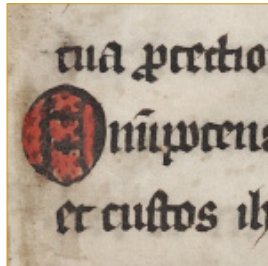 tua ꝓtectio
Om̄ipotens
et custos ih